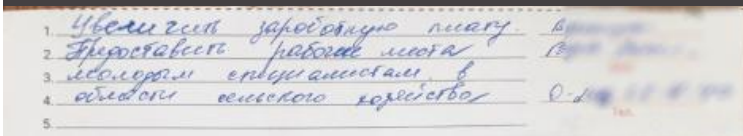 1. Увеличить зароботную плату. В
2. Предоставить рабочие места В
3. молодым специалистам в
4. области сельского хозяйства О-
5.